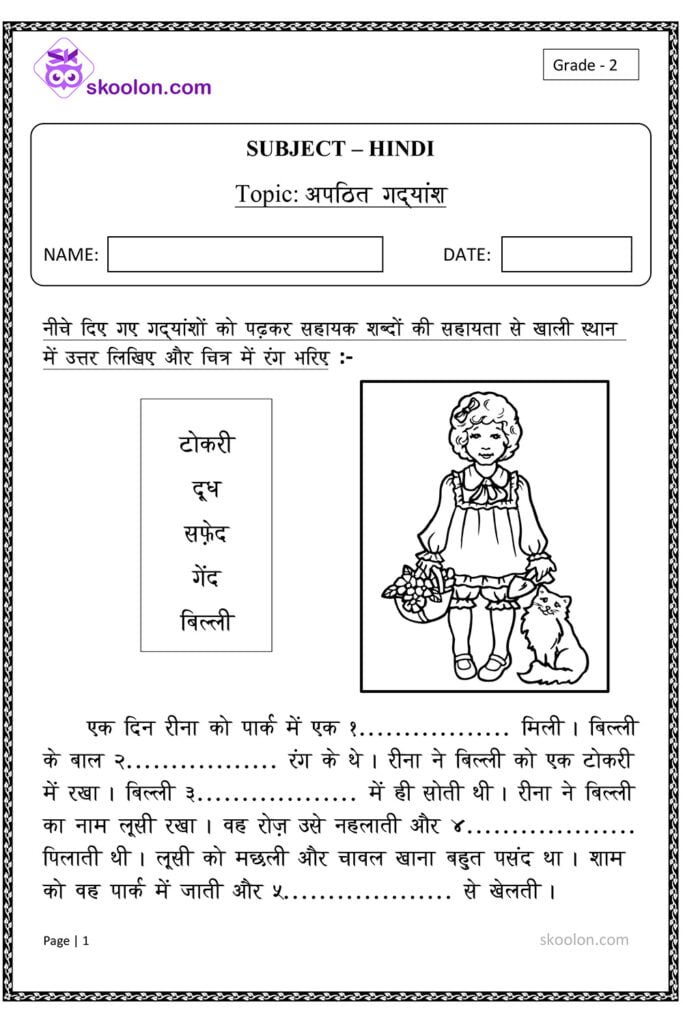 SK
skoolon.com
Grade - 2
SUBJECT – HINDI
Topic: अपठित गद्यांश
NAME:
DATE:
नीचे दिए गए गद्यांशों को पढ़कर सहायक शब्दों की सहायता से खाली स्थान
में उत्तर लिखिए और चित्र में रंग भरिए :-
टोकरी
दूध
सफ़ेद
गेंद
बिल्ली
एक दिन रीना को पार्क में एक १................. मिली । बिल्ली
के बाल २................. रंग के थे । रीना ने बिल्ली को एक टोकरी
में रखा । बिल्ली ३.................. में ही सोती थी । रीना ने बिल्ली
का नाम लूसी रखा । वह रोज़ उसे नहलाती और ४...................
पिलाती थी । लूसी को मछली और चावल खाना बहुत पसंद था । शाम
को वह पार्क में जाती और ५................... से खेलती ।
Page | 1
skoolon.com